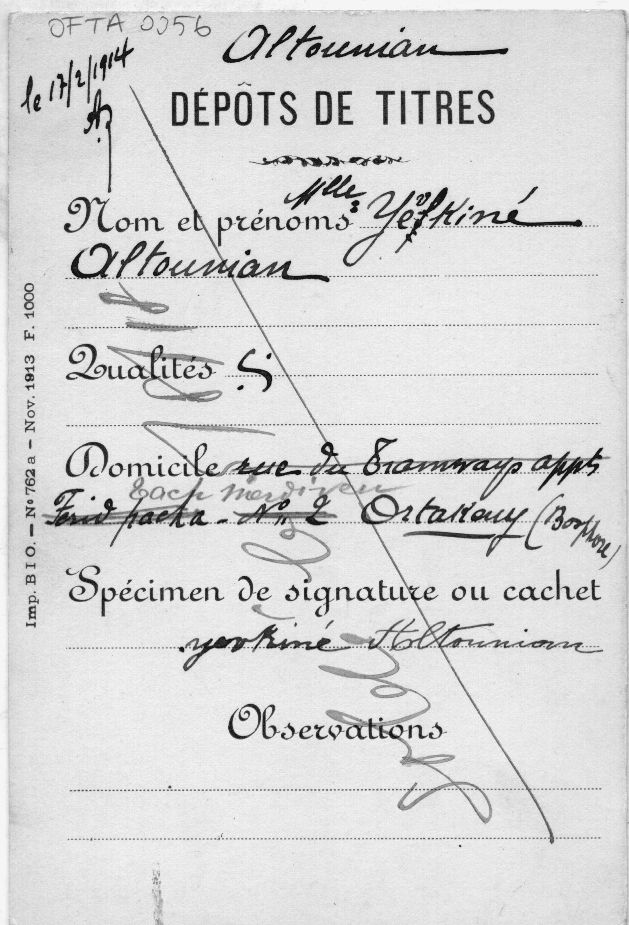 OFTA 0056
Altounian
le 17/2/1914
DÉPÔTS DE TITRES
Nom et prénoms Mlle Yevkiné
Altounian
Qualités
Domicile rue du Tramways appts
Zach merdiven
Ferid pacha - No 2 Ortakeuy (Bosphore)
Spécimen de signature ou cachet
yevkiné Altounian
Observations
Imp. B I O. – No 762 a – Nov. 1913 F. 1000